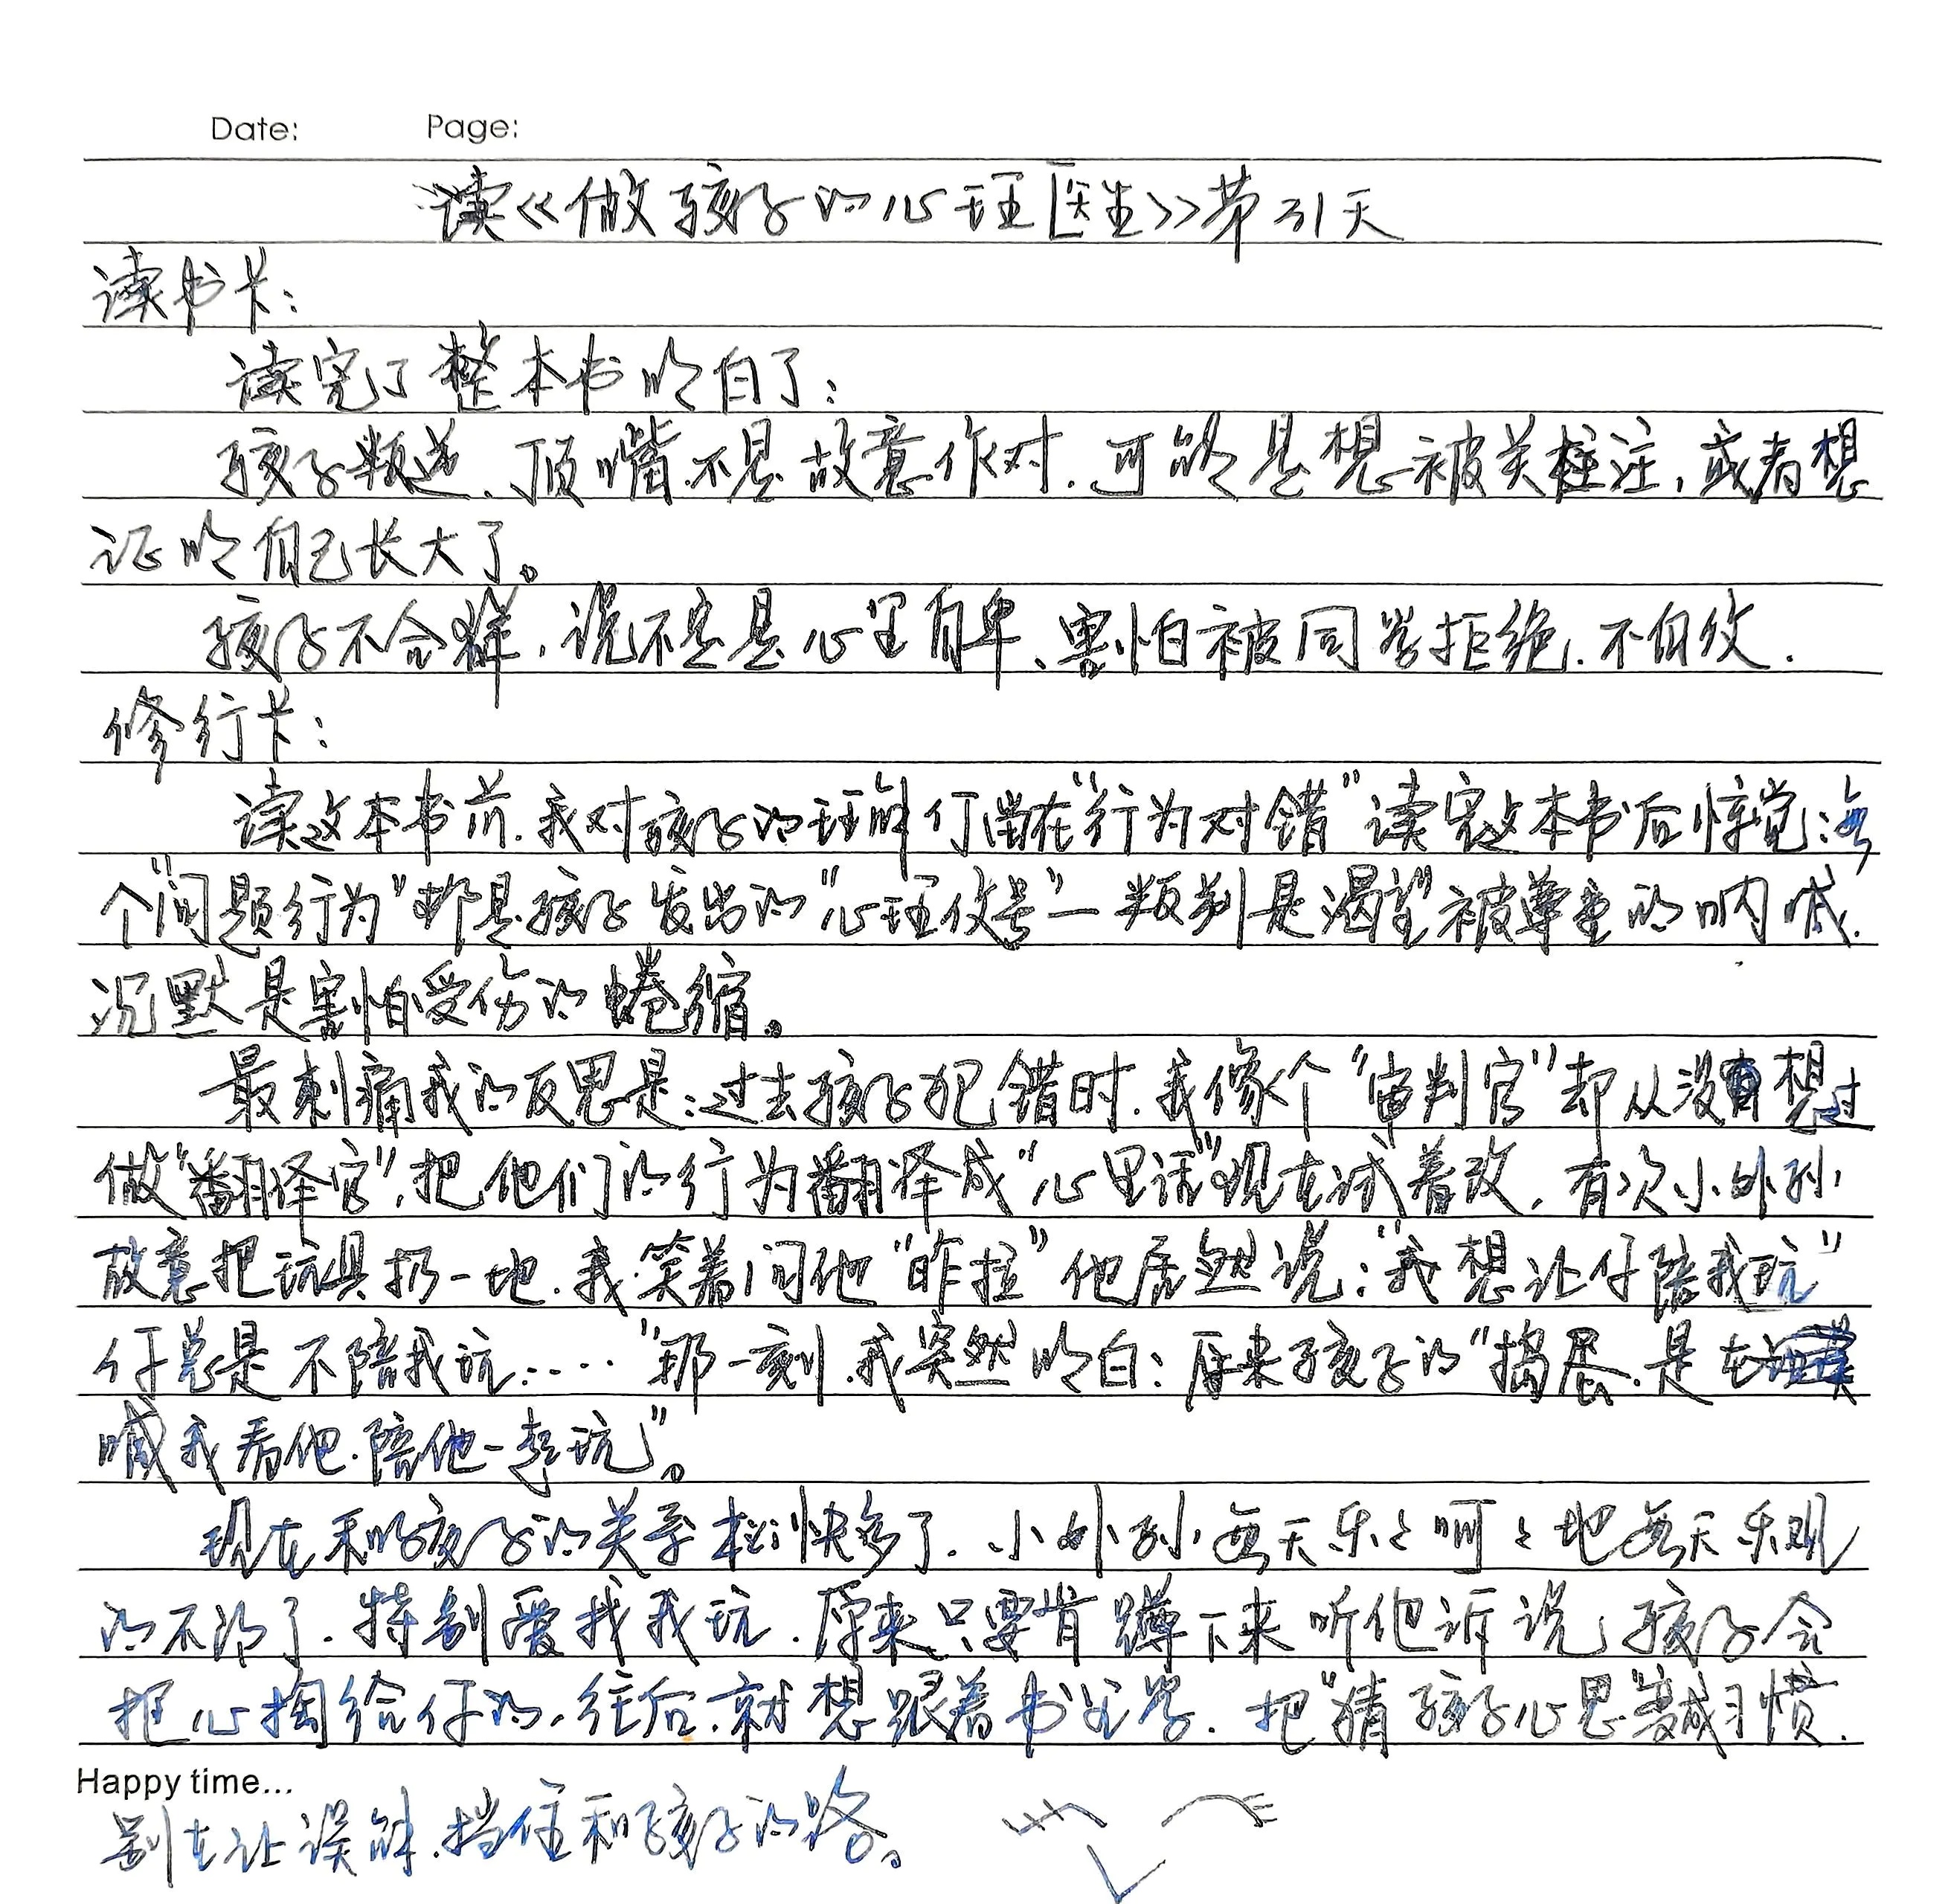 Date: Page:
读《做孩子的心理医生》第31天
读书卡:
读完了整本书明白了:
孩子叛逆、顶嘴不是故意作对.可能是想被关注,或者想
证明自己长大了。
孩子不合群,说不定是心里自卑、害怕被同学拒绝.不自信.
修行卡:
读这本书前.我对孩子的理解仃留在"行为对错"读完这本书后惊觉:每
个"问题行为"都是孩子发出的"心理信号"一叛判是渴望被尊重的呐喊.
沉默是害怕受伤的蜷缩。
最刺痛我的反思是:过去孩子犯错时.我像个"审判官"却从没有想过
做"翻译官",把他们的行为翻译成"心里话"现在试着改,有次小外孙
故意把玩具扔一地.我笑着问他"咋拉"他居然说:"我想让仔陪我玩"
仔总是不陪我玩……"那一刻.我突然明白:原来孩子的"捣蛋.是在
喊我看他.陪他一起玩"。
现在和孩子的关系松快多了.小外孙每天乐々呵々地每天乐观
的不得了.特别爱找我玩.原来只要肯蹲下来听他诉说,孩子会
把心掏给仔的,往后.就想跟着书学.把"猜孩子心思"变成习惯.
Happy time...
别在让误解.挡住和孩子的路。